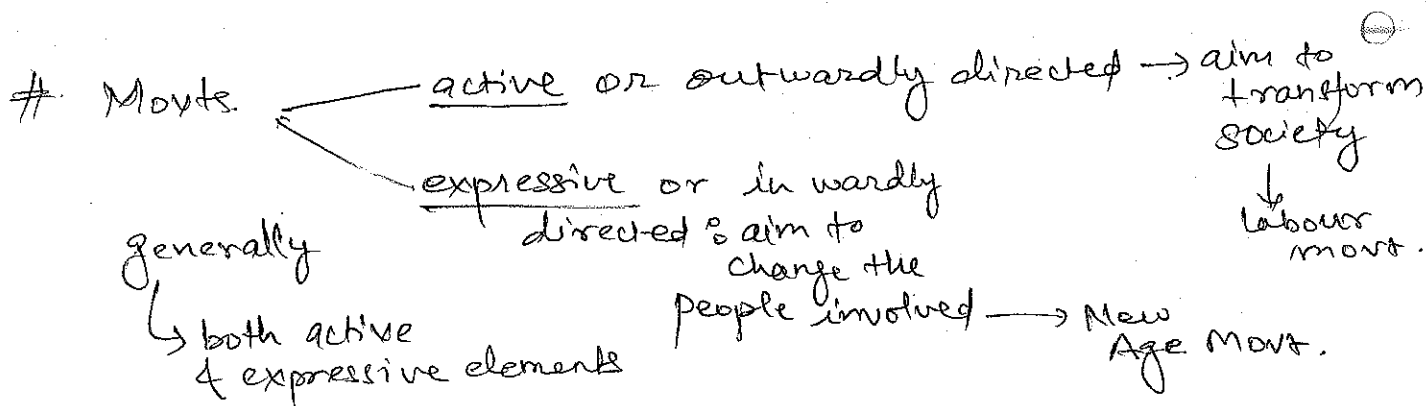 # Movts. active or outwardly directed → aim to
transform
society
↓
labour
movt.
expressive or inwardly
directed : aim to
change the
people involved → New
Age Movt.
generally
↳ both active
& expressive elements